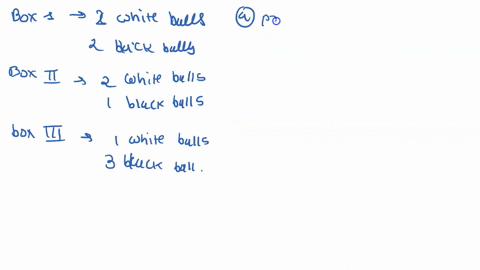 Box 1 → 2 white balls
2 black balls
Box II → 2 white balls
1 black balls
box III → 1 white balls
3 black ball.
(a) po